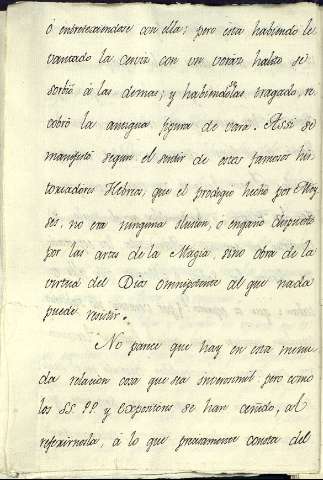 ó entretexiendose con ella; pero esta habiendo le
vantado la cerviz con un voraz halito se
sorbió á las demas; y habiendoselas tragado, re
cobró la antigua figura de vara. Assi se
manifestó segun el sentir de otros famosos his
toriadores Hebreos, que el prodigio hecho por Moy
ses, no era ninguna ilusion, o engaño dispuesto
por las artes de la Magia, sino obra de la
virtud del Dios omnipotente al que nada
puede resistir.
No parece que hay en esta menu
da relacion cosa que sea inverosimil; pero como
los SS. PP. y Expositores se han ceñido, al
referirnosla, á lo que precisamente consta del